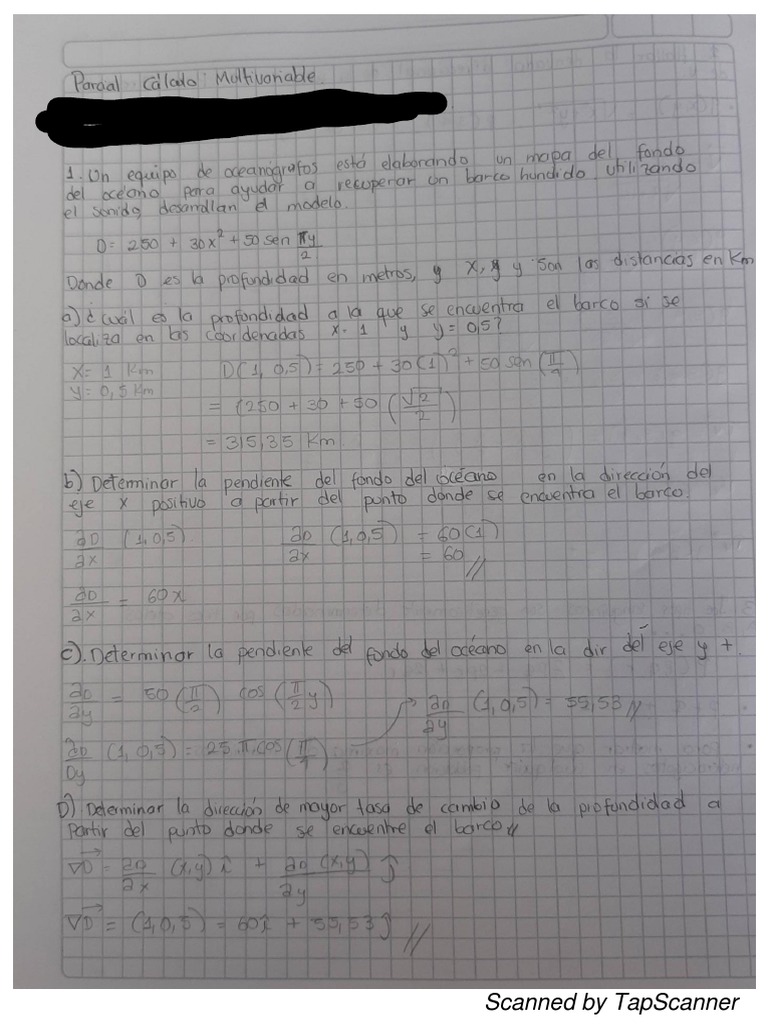 Parcial Cálculo Multivariable.
1. Un equipo de oceanógrafos está elaborando un mapa del fondo
del océano para ayudar a recuperar un barco hundido utilizando
el sonido, desarrollan el modelo.
D = 250 + 30x² + 50 sen πy/2
Donde D es la profundidad en metros, y x, y y son las distancias en Km
a) ¿cuál es la profundidad a la que se encuentra el barco si se
localiza en las coordenadas x = 1 y y = 0,5?
x = 1 Km D(1, 0,5) = 250 + 30(1)² + 50 sen (π/4)
y = 0,5 Km
= (250 + 30 + 50 (√2/2)
= 315,35 Km
b) Determinar la pendiente del fondo del océano en la dirección del
eje x positivo a partir del punto donde se encuentra el barco.
∂D/∂x (1, 0,5) ∂D/∂x (1, 0,5) = 60(1)
= 60 //
∂D/∂x = 60x
c). Determinar la pendiente del fondo del océano en la dir del eje y +.
∂D/∂y = 50 (π/2) cos (π/2 y) → ∂D/∂y (1, 0,5) = 55,53 //
∂D/∂y (1, 0,5) = 25 π cos (π/4)
D) Determinar la dirección de mayor tasa de cambio de la profundidad a
partir del punto donde se encuentre el barco //
∇D = ∂D/∂x (x,y) î + ∂D/∂y (x,y) ĵ
∇D = (1, 0,5) = 60î + 55,53 ĵ //
Scanned by TapScanner